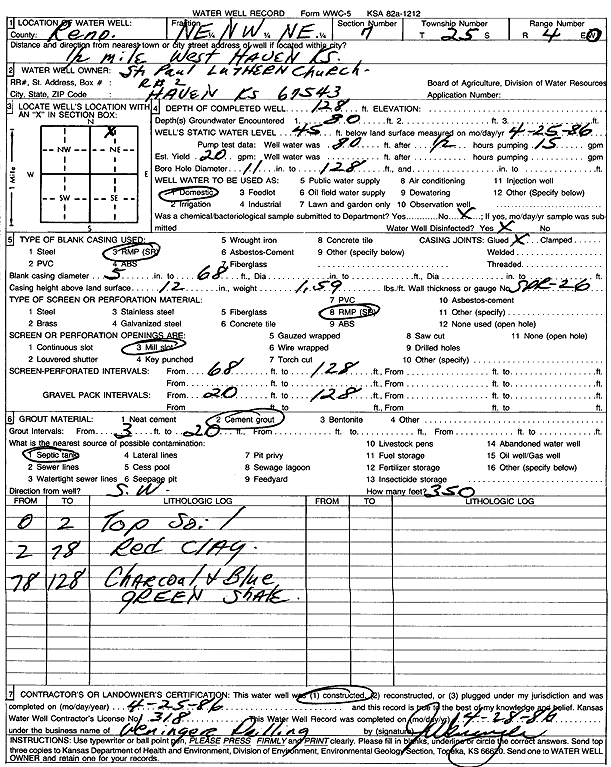 WATER WELL RECORD Form WWC-5 KSA 82a-1212
1 LOCATION OF WATER WELL: Fraction Section Number Township Number Range Number
County: Reno NE ¼ NW ¼ NE ¼ 7 T 25 S R 4 E(W)
Distance and direction from nearest town or city street address of well if located within city?
1½ mile West HAVEN KS.
2 WATER WELL OWNER: St Paul LUTHERN CHURCH
RR#, St. Address, Box # : RR# 2 Board of Agriculture, Division of Water Resources
City, State, ZIP Code : HAVEN KS 67543 Application Number:
3 LOCATE WELL'S LOCATION WITH AN "X" IN SECTION BOX:
N
X
NW NE
W E
SW SE
S
1 Mile
4 DEPTH OF COMPLETED WELL 128 ft. ELEVATION:
Depth(s) Groundwater Encountered 1. 80 ft. 2. ft. 3. ft.
WELL'S STATIC WATER LEVEL 45 ft. below land surface measured on mo/day/yr 4-25-86
Pump test data: Well water was 80 ft. after 1/2 hours pumping 15 gpm
Est. Yield 20 gpm: Well water was ft. after hours pumping gpm
Bore Hole Diameter 11 in. to 128 ft., and in. to ft.
WELL WATER TO BE USED AS: 5 Public water supply 8 Air conditioning 11 Injection well
1 Domestic 3 Feedlot 6 Oil field water supply 9 Dewatering 12 Other (Specify below)
2 Irrigation 4 Industrial 7 Lawn and garden only 10 Observation well
Was a chemical/bacteriological sample submitted to Department? Yes No X; If yes, mo/day/yr sample was submitted
Water Well Disinfected? Yes X No
5 TYPE OF BLANK CASING USED: 5 Wrought iron 8 Concrete tile CASING JOINTS: Glued X Clamped
1 Steel 3 RMP (SR) 6 Asbestos-Cement 9 Other (specify below) Welded
2 PVC 4 ABS 7 Fiberglass Threaded
Blank casing diameter 5 in. to 68 ft., Dia in. to ft., Dia in. to ft.
Casing height above land surface 12 in., weight 1.59 lbs./ft. Wall thickness or gauge No. SDR-26
TYPE OF SCREEN OR PERFORATION MATERIAL: 7 PVC 10 Asbestos-cement
1 Steel 3 Stainless steel 5 Fiberglass 8 RMP (SR) 11 Other (specify)
2 Brass 4 Galvanized steel 6 Concrete tile 9 ABS 12 None used (open hole)
SCREEN OR PERFORATION OPENINGS ARE: 5 Gauzed wrapped 8 Saw cut 11 None (open hole)
1 Continuous slot 3 Mill slot 6 Wire wrapped 9 Drilled holes
2 Louvered shutter 4 Key punched 7 Torch cut 10 Other (specify)
SCREEN-PERFORATED INTERVALS: From 68 ft. to 128 ft., From ft. to ft.
From ft. to ft., From ft. to ft.
GRAVEL PACK INTERVALS: From 20 ft. to 128 ft., From ft. to ft.
From ft. to ft., From ft. to ft.
6 GROUT MATERIAL: 1 Neat cement 2 Cement grout 3 Bentonite 4 Other
Grout Intervals: From 3 ft. to 20 ft., From ft. to ft., From ft. to ft.
What is the nearest source of possible contamination: 10 Livestock pens 14 Abandoned water well
1 Septic tank 4 Lateral lines 7 Pit privy 11 Fuel storage 15 Oil well/Gas well
2 Sewer lines 5 Cess pool 8 Sewage lagoon 12 Fertilizer storage 16 Other (specify below)
3 Watertight sewer lines 6 Seepage pit 9 Feedyard 13 Insecticide storage
Direction from well? S.W. How many feet? 350
FROM TO LITHOLOGIC LOG FROM TO LITHOLOGIC LOG
0 2 Top Soil
2 78 Red CLAY.
78 128 Charcoal & Blue
GREEN Shale
7 CONTRACTOR'S OR LANDOWNER'S CERTIFICATION: This water well was (1) constructed, (2) reconstructed, or (3) plugged under my jurisdiction and was
completed on (mo/day/year) 4-25-86 and this record is true to the best of my knowledge and belief. Kansas
Water Well Contractor's License No. 318 This Water Well Record was completed on (mo/day/yr) 4-28-86
under the business name of Weninger Drilling by (signature)
INSTRUCTIONS: Use typewriter or ball point pen, PLEASE PRESS FIRMLY and PRINT clearly. Please fill in blanks, underline or circle the correct answers. Send top
three copies to Kansas Department of Health and Environment, Division of Environment, Environmental Geology Section, Topeka, KS 66620. Send one to WATER WELL
OWNER and retain one for your records.